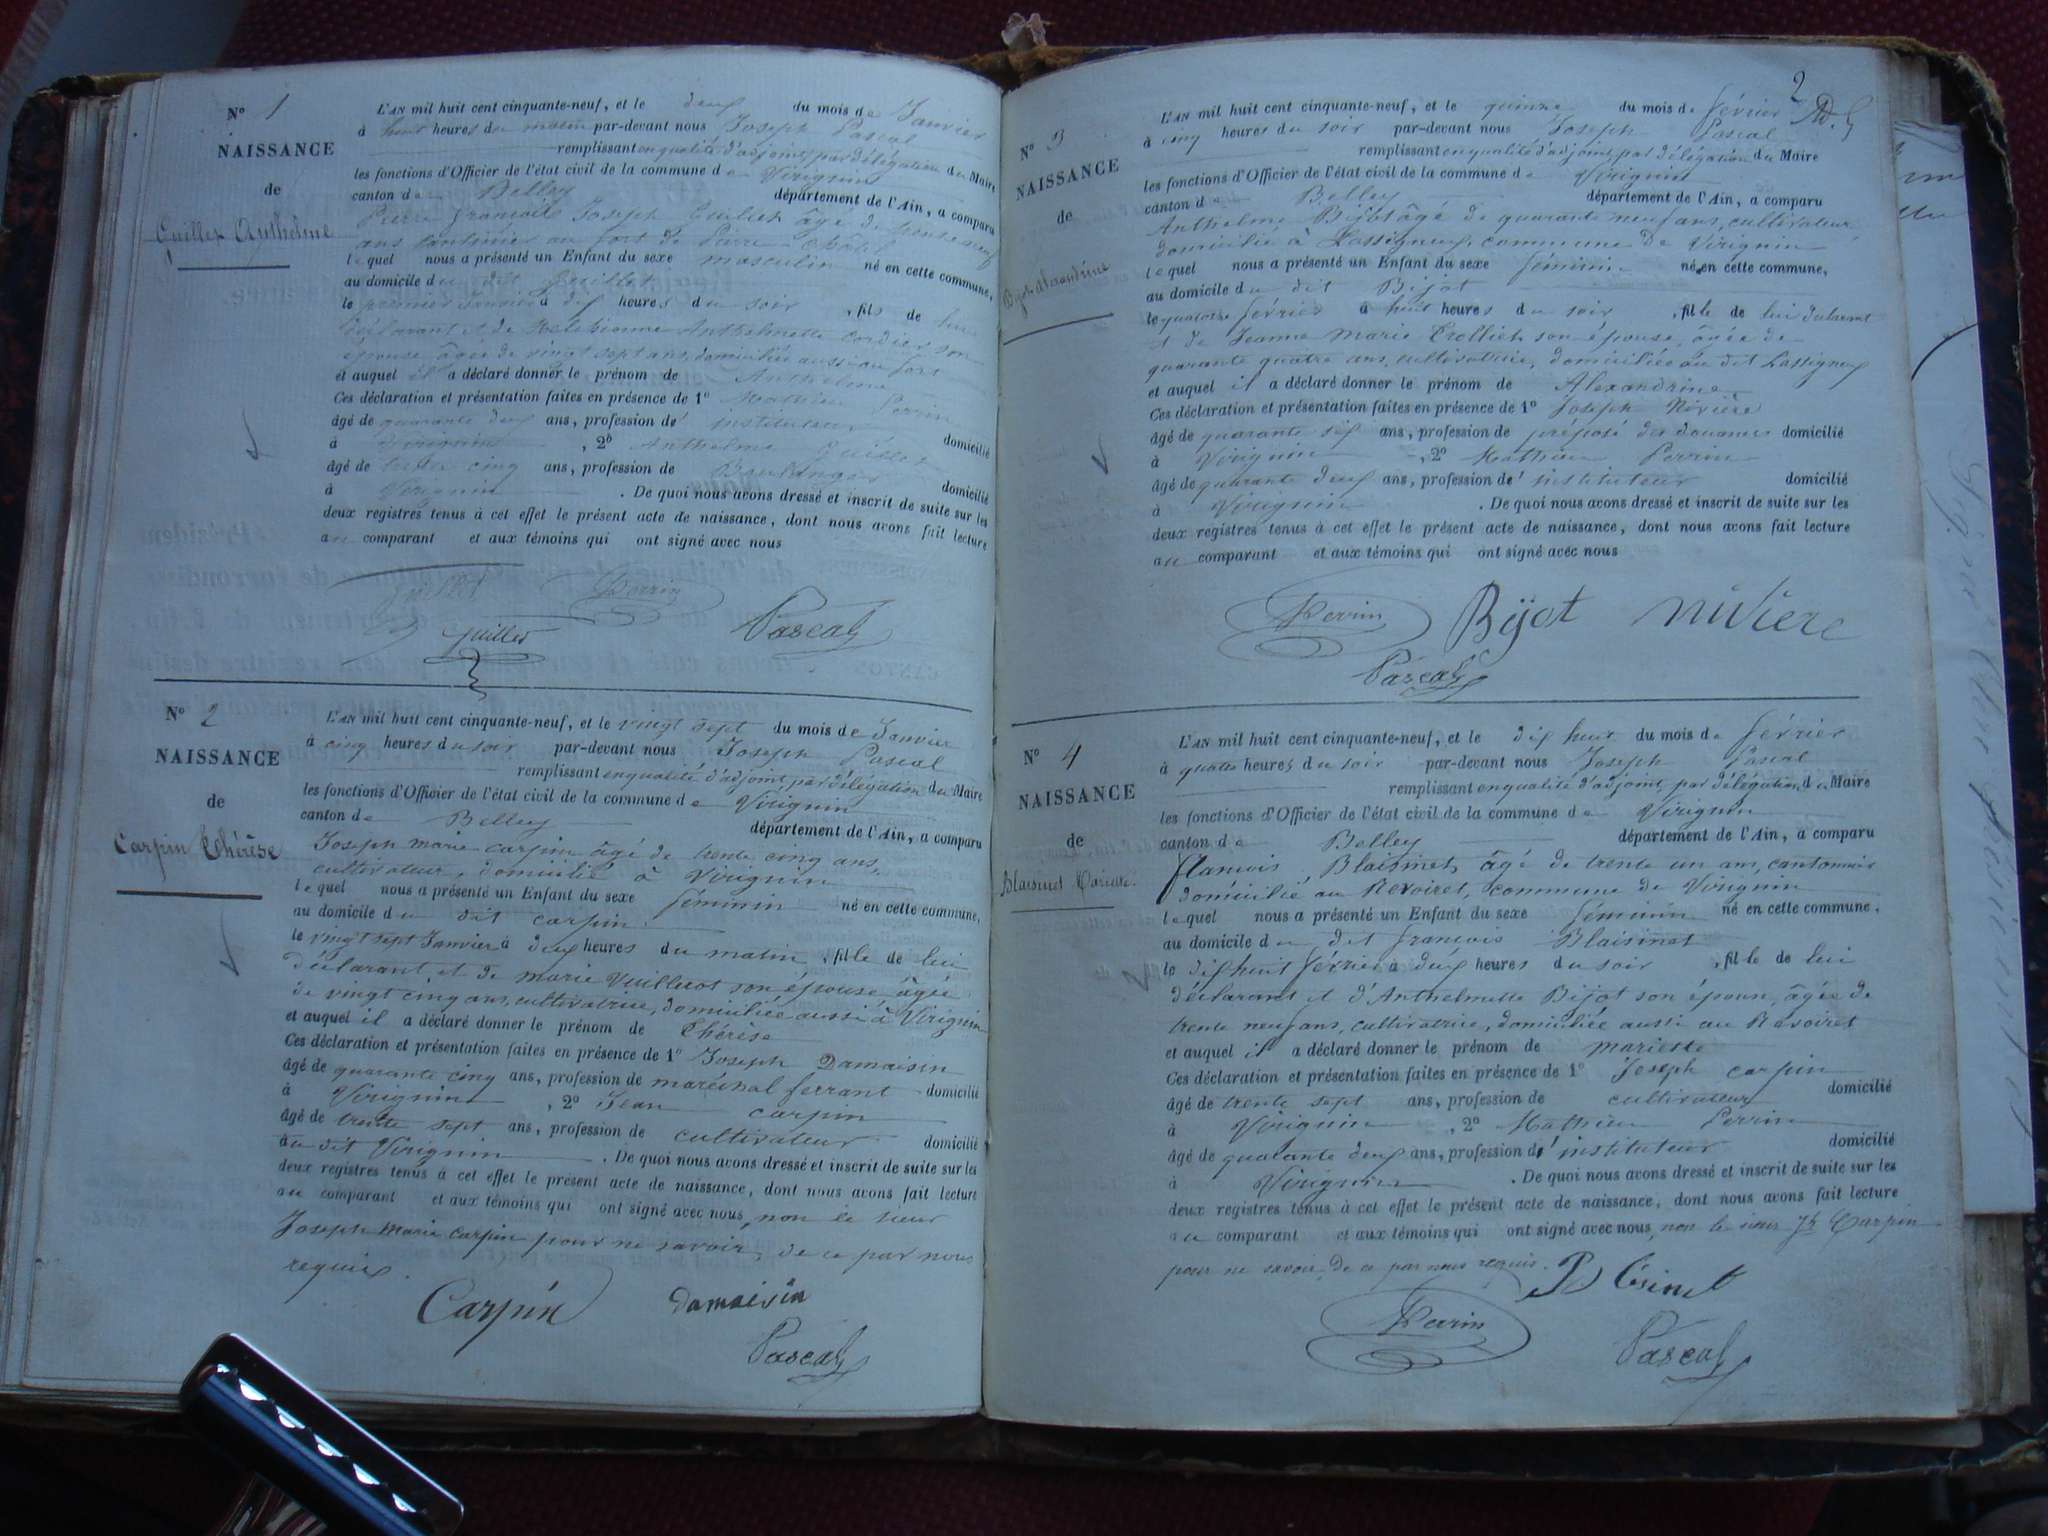 N° 1
NAISSANCE
de
Guillet Anthelme
L'AN mil huit cent cinquante-neuf, et le deux du mois de Janvier
à huit heures du matin par-devant nous Joseph Pascal
remplissant en qualité d'adjoint, par délégation du Maire
les fonctions d'Officier de l'état civil de la commune de Virignin
canton de Belley département de l'Ain, a comparu
Pierre François Joseph Guillet âgé de trente neuf
ans cantinier au fort de Pierre Châtel
lequel nous a présenté un Enfant du sexe masculin né en cette commune,
au domicile du dit Guillet
le premier Janvier à dix heures du soir , fils de lui
déclarant et de Anthelmette Cordier son
épouse, âgée de vingt sept ans, domiciliée aussi au fort
et auquel il a déclaré donner le prénom de Anthelme
Ces déclaration et présentation faites en présence de 1° Mathieu Perrin
âgé de quarante deux ans, profession d' instituteur domicilié
à Virignin , 2° Anthelme Guillet
âgé de trente cinq ans, profession de Boulanger domicilié
à Virignin . De quoi nous avons dressé et inscrit de suite sur les
deux registres tenus à cet effet le présent acte de naissance, dont nous avons fait lecture
au comparant et aux témoins qui ont signé avec nous
Guillet Perrin
Guillet Pascal
N° 2
NAISSANCE
de
Carpin Thérèse
L'AN mil huit cent cinquante-neuf, et le vingt sept du mois de Janvier
à cinq heures du soir par-devant nous Joseph Pascal
remplissant en qualité d'adjoint, par délégation du Maire
les fonctions d'Officier de l'état civil de la commune de Virignin
canton de Belley département de l'Ain, a comparu
Joseph marie carpin âgé de trente cinq ans,
cultivateur, domicilié à Virignin
lequel nous a présenté un Enfant du sexe féminin né en cette commune,
au domicile du dit carpin
le vingt sept Janvier à deux heures du matin , fille de lui
déclarant, et de marie Vuillerot son épouse, âgée
de vingt cinq ans, cultivatrice, domiciliée aussi à Virignin
et auquel il a déclaré donner le prénom de Thérèse
Ces déclaration et présentation faites en présence de 1° Joseph Damaisin
âgé de quarante cinq ans, profession de maréchal ferrant domicilié
à Virignin , 2° Jean carpin
âgé de trente sept ans, profession de cultivateur domicilié
au dit Virignin . De quoi nous avons dressé et inscrit de suite sur les
deux registres tenus à cet effet le présent acte de naissance, dont nous avons fait lecture
au comparant et aux témoins qui ont signé avec nous, non le sieur
Joseph marie carpin pour ne savoir, de ce par nous
requis.
Carpin Damaisin
Pascal
2
N° 3
NAISSANCE
de
Bijot Alexandrine
L'AN mil huit cent cinquante-neuf, et le quinze du mois de février
à cinq heures du soir par-devant nous Joseph Pascal
remplissant en qualité d'adjoint, par délégation du Maire
les fonctions d'Officier de l'état civil de la commune de Virignin
canton de Belley département de l'Ain, a comparu
Anthelme Bijot âgé de quarante neuf ans, cultivateur
domicilié à Lassigneux, commune de Virignin
lequel nous a présenté un Enfant du sexe féminin né en cette commune,
au domicile du dit Bijot
le quatorze février à huit heures du soir , fille de lui déclarant
et de Jeanne Marie Trolliet son épouse, âgée de
quarante quatre ans, cultivatrice, domiciliée au dit Lassigneux
et auquel il a déclaré donner le prénom de Alexandrine
Ces déclaration et présentation faites en présence de 1° Joseph Nivière
âgé de quarante six ans, profession de préposé des douanes domicilié
à Virignin , 2° Mathieu Perrin
âgé de quarante deux ans, profession d' instituteur domicilié
à Virignin . De quoi nous avons dressé et inscrit de suite sur les
deux registres tenus à cet effet le présent acte de naissance, dont nous avons fait lecture
au comparant et aux témoins qui ont signé avec nous
Perrin Bijot nivière
Pascal
N° 4
NAISSANCE
de
Blaisinet Mariette
L'AN mil huit cent cinquante-neuf, et le dix huit du mois de février
à quatre heures du soir par-devant nous Joseph Pascal
remplissant en qualité d'adjoint, par délégation du Maire
les fonctions d'Officier de l'état civil de la commune de Virignin
canton de Belley département de l'Ain, a comparu
françois Blaisinet, âgé de trente un ans, cantonnier
domicilié au Revoiret, commune de Virignin
lequel nous a présenté un Enfant du sexe féminin né en cette commune,
au domicile du dit françois Blaisinet
le dix huit février à deux heures du soir , fille de lui
déclarant et d'Anthelmette Bijot son épouse, âgée de
trente neuf ans, cultivatrice, domiciliée aussi au Revoiret
et auquel il a déclaré donner le prénom de mariette
Ces déclaration et présentation faites en présence de 1° Joseph carpin
âgé de trente sept ans, profession de cultivateur domicilié
à Virignin , 2° Mathieu Perrin
âgé de quarante deux ans, profession d' instituteur domicilié
à Virignin . De quoi nous avons dressé et inscrit de suite sur les
deux registres tenus à cet effet le présent acte de naissance, dont nous avons fait lecture
au comparant et aux témoins qui ont signé avec nous, non le sieur Jh Carpin
pour ne savoir, de ce par nous requis.
Perrin Pascal